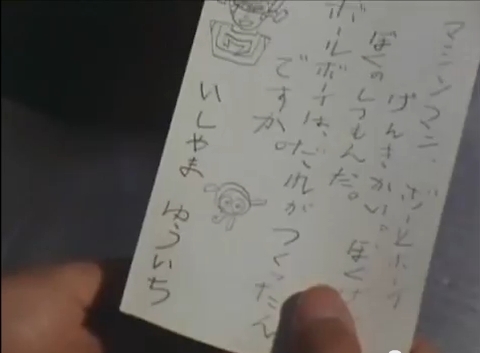 マシンマン、
げんきかい。ぼく
ぼくのしつもんだ。
ボールボーイは、だれがつくったん
ですか。
いしやま ゆういち